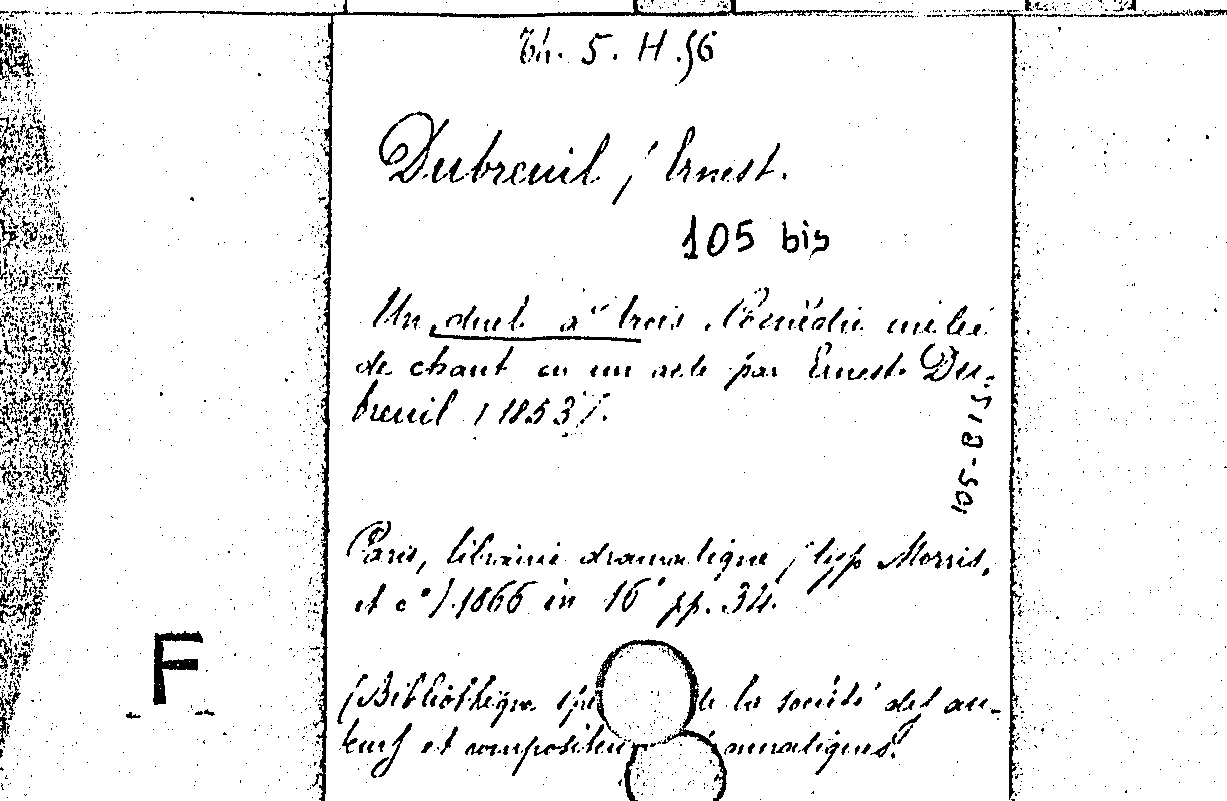 Th. 5. H. 56
Dubreuil / Ernest.
105 bis
Un duel à trois. Comédie mêlée
de chant en un acte par Ernest Du-
breuil (1853).
151 B-501
Paris, librairie dramatique (typ Morris,
et c°) 1866 in 16° pp. 34.
(Bibliothèque de la société des au-
teurs et
F